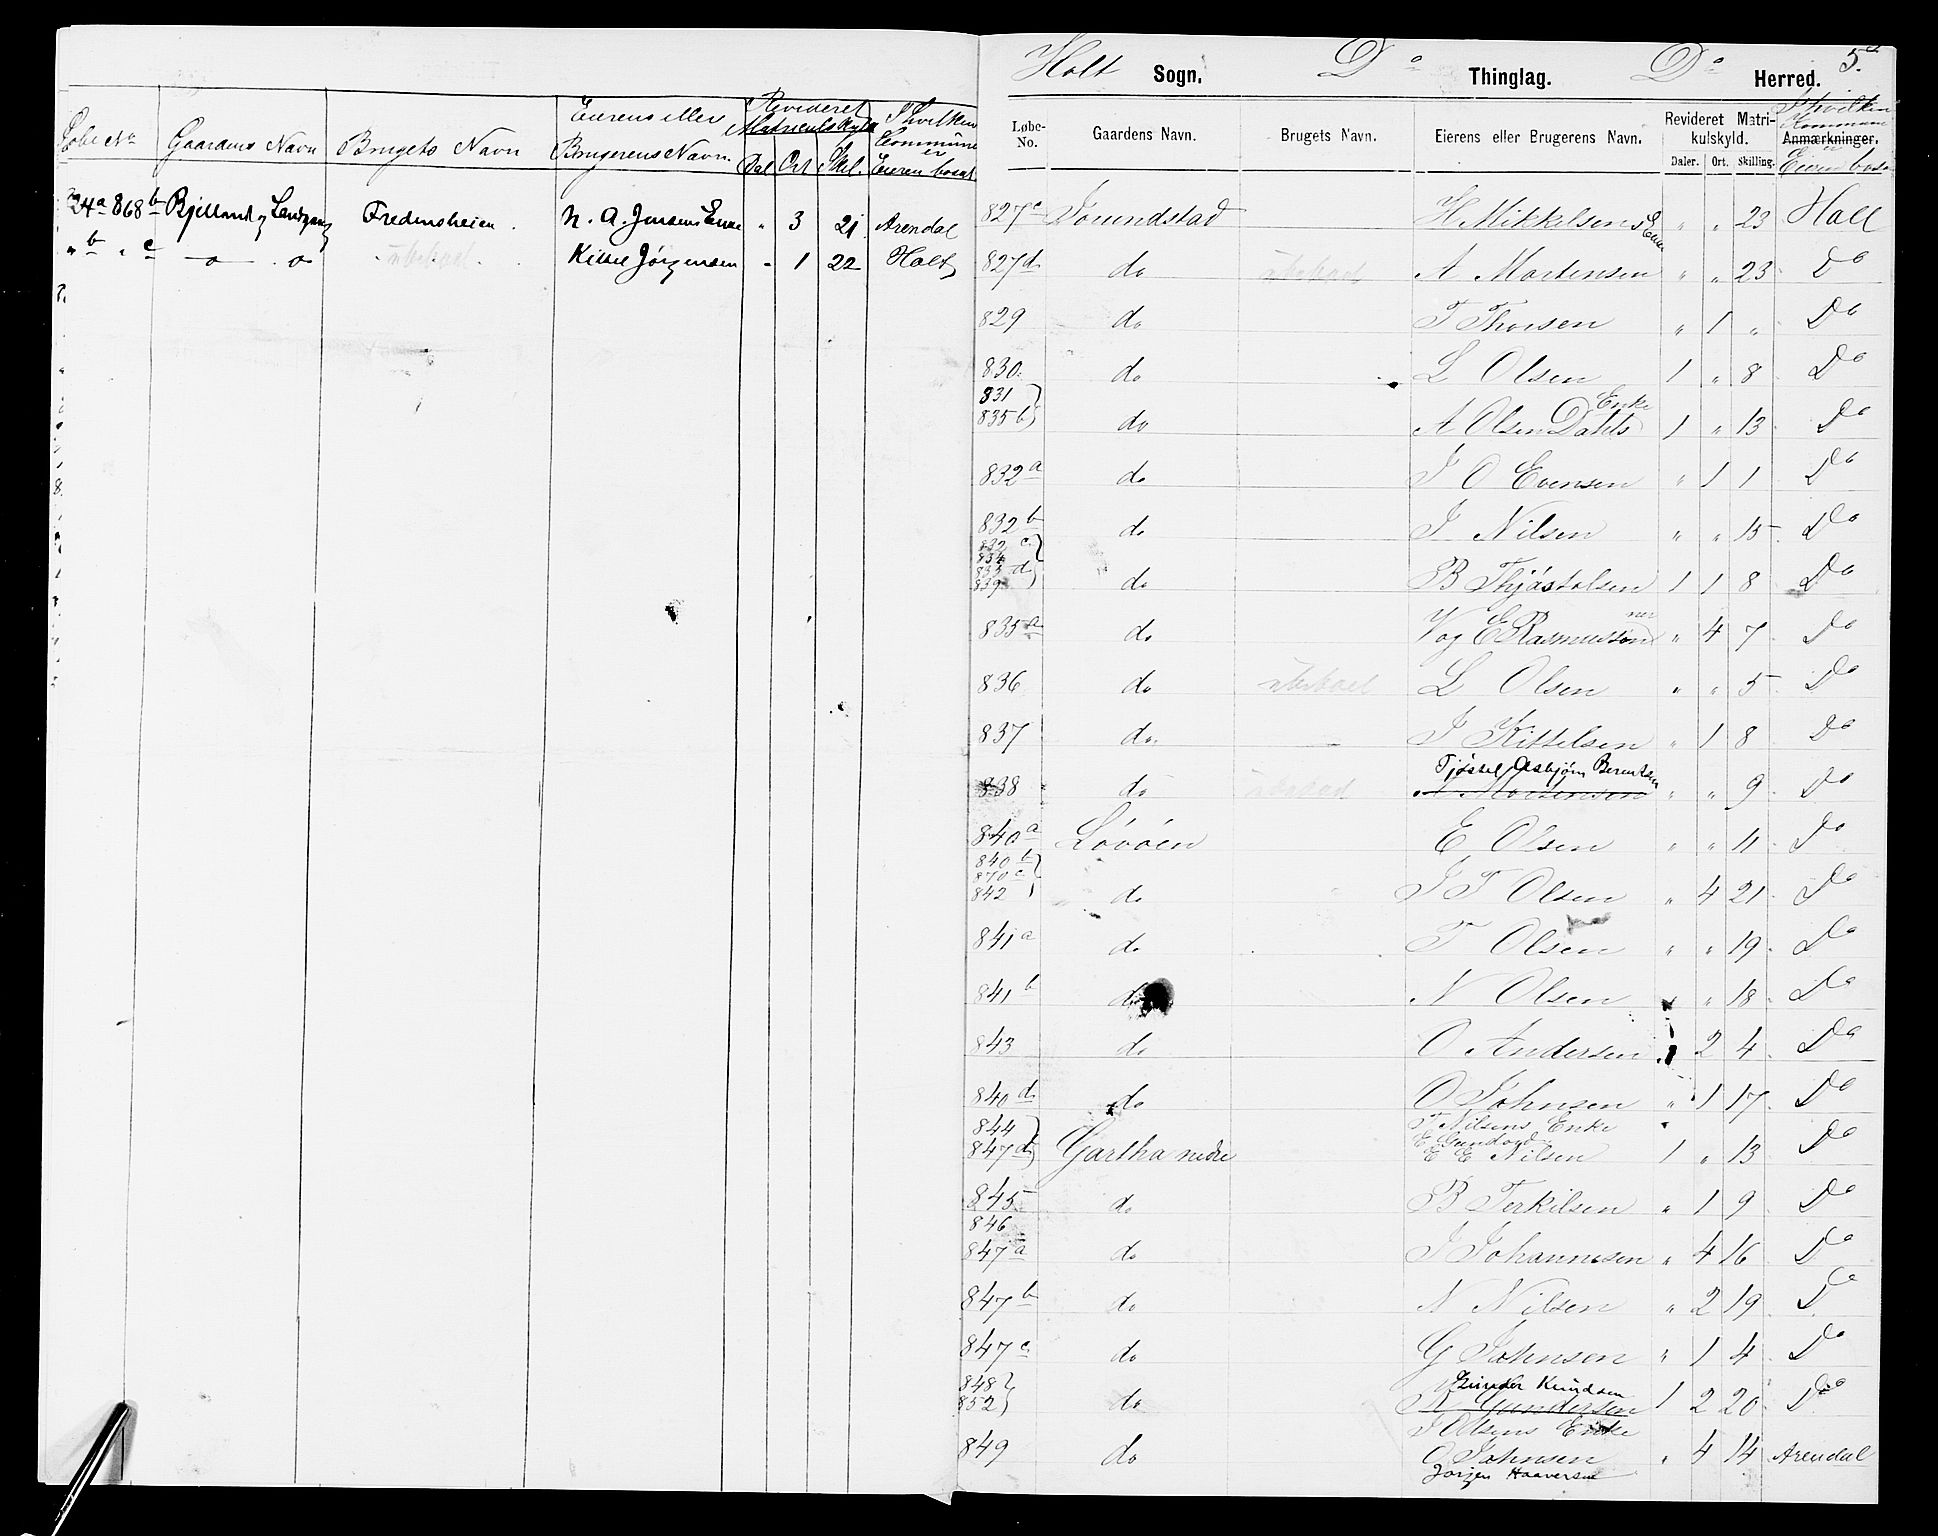 Løbe No Gaardens Navn Brugets Navn Eierens eller Brugerens Navn Revideret Matriculskyld Dal Ort Skil. I hvilken Commune er Eieren bosat
24a 868b Bjelland og Landgang Fredensheien N. A. Jensens Enke " 3 21 Arendal
" b " c — o — o ubebod Kittel Jørgensen " 1 22 Holt
Holt Sogn. Do Thinglag. Do Herred. 5.
Løbe-No. Gaardens Navn. Brugets Navn. Eierens eller Brugerens Navn. Revideret Matrikulskyld. Daler. Ort. Skilling. Anmærkninger. I hvilken Kommune er Eieren bosat
827c Jorundstad H Mikkelsens Enke " " 23 Holt
827d do ubebod A Mortensen " " 23 Do
829 do T Thorsen " 1 " Do
830 do L Olsen 1 " 8 Do
831
835b do A Olsen Dahls Enke 1 " 13 Do
832a do J O Evensen " 1 1 Do
832b do J Nilsen " " 15 Do
832c
834
835d
839 do B Thjøstolsen 1 1 8 Do
835a do V og E Rasmussøn " 4 7 Do
836 do ubeboet L Olsen " " 5 Do
837 do J Kittelsen " 1 8 Do
Tjøstel Asbjørn Berentsen
838 do ubebod A Mortensen " " 9 Do
840a Løvøen E Olsen " " 11 Do
840b
870c
842 do J T Olsen " 4 21 Do
841a do T Olsen " " 19 Do
841b do N Olsen " " 18 Do
843 do O Andersen " 2 4 Do
840d do O Johnsen " 1 17 Do
844 T Nilsens Enke
E Gundvald
847d Gartha nedre E E Nilsen 1 " 13 Do
845 do B Terkilsen " 1 9 Do
846
847a do J Johannesen " 4 16 Do
847b do N Nilsen " 2 19 Do
847c do G Johnsen " 1 4 Do
848 Gunder Knudsen
852 do N Gundersen 1 2 20 Do
J Olsens Enke
849 do O Johnsen " 4 14 Arendal
Jørgen Haaversen